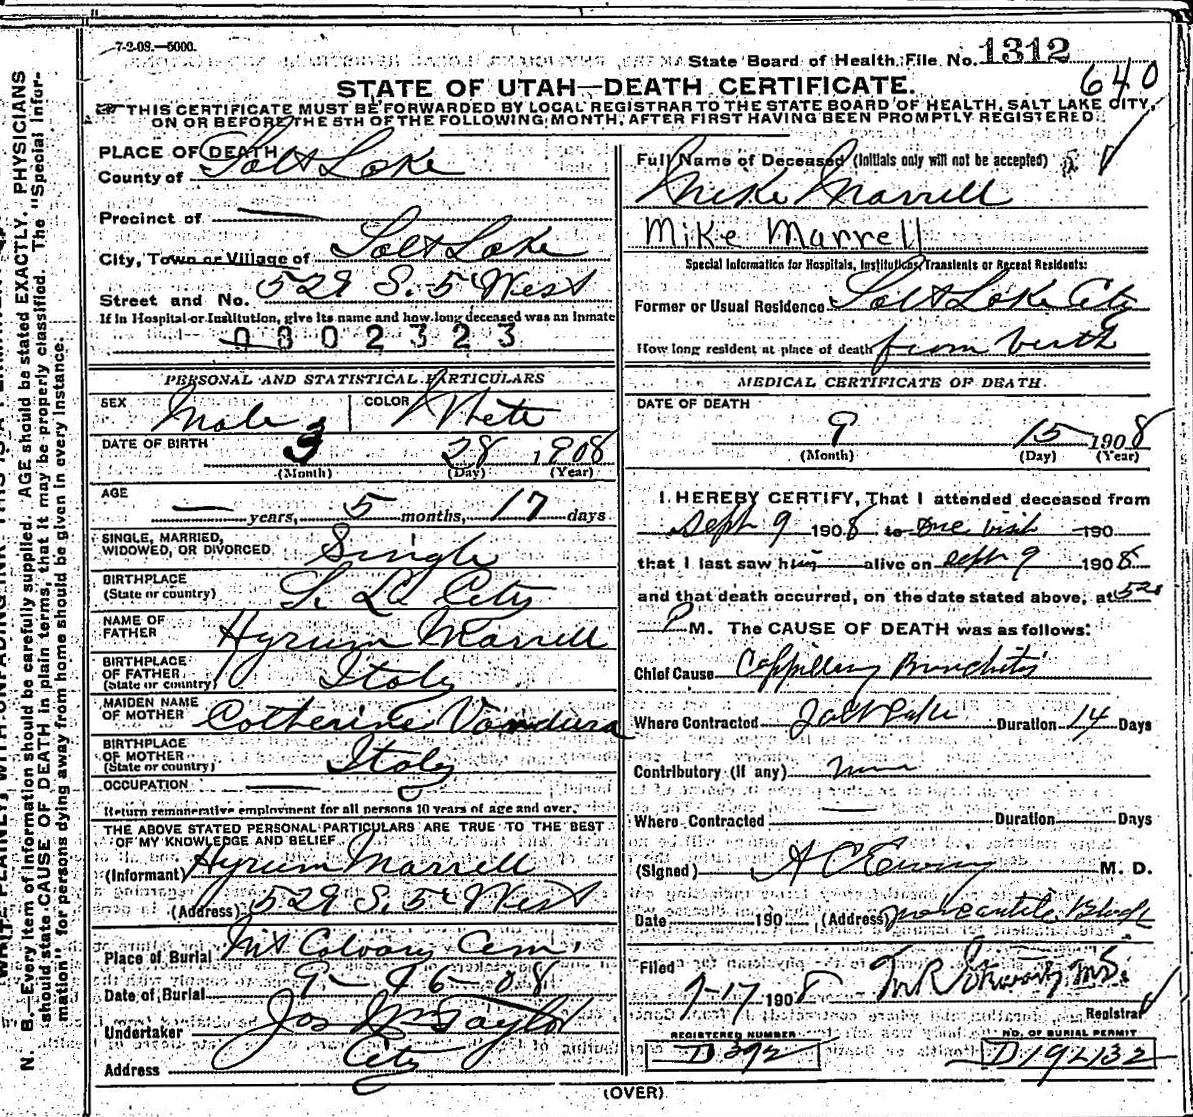 7-2-08.—5000.
State Board of Health File No. 1312
640
STATE OF UTAH—DEATH CERTIFICATE.
THIS CERTIFICATE MUST BE FORWARDED BY LOCAL REGISTRAR TO THE STATE BOARD OF HEALTH, SALT LAKE CITY,
ON OR BEFORE THE 5TH OF THE FOLLOWING MONTH, AFTER FIRST HAVING BEEN PROMPTLY REGISTERED.
PLACE OF DEATH
County of Salt Lake
Precinct of —
City, Town or Village of Salt Lake
Street and No. 529 S. 5 West
If in Hospital or Institution, give its name and how long deceased was an Inmate
0802323
PERSONAL AND STATISTICAL PARTICULARS
SEX Male COLOR White
DATE OF BIRTH 3 28 1908
(Month) (Day) (Year)
AGE — years, 5 months, 17 days
SINGLE, MARRIED,
WIDOWED, OR DIVORCED Single
BIRTHPLACE
(State or country) S. L. City
NAME OF
FATHER Hyrum Marrell
BIRTHPLACE
OF FATHER
(State or country) Italy
MAIDEN NAME
OF MOTHER Catherine
BIRTHPLACE
OF MOTHER
(State or country) Italy
OCCUPATION —
Return remunerative employment for all persons 10 years of age and over.
THE ABOVE STATED PERSONAL PARTICULARS ARE TRUE TO THE BEST
OF MY KNOWLEDGE AND BELIEF
(Informant) Hyrum Marrell
(Address) 529 S. 5 West
Place of Burial Mt Calvary Cem.
Date of Burial 9-16-08
Undertaker Jos Wm Taylor
Address City
Full Name of Deceased (Initials only will not be accepted)
Mike Marrell
Mike Marrell
Special Information for Hospitals, Institutions, Transients or Recent Residents:
Former or Usual Residence Salt Lake City
How long resident at place of death from birth
MEDICAL CERTIFICATE OF DEATH.
DATE OF DEATH
9 15 1908
(Month) (Day) (Year)
I HEREBY CERTIFY, That I attended deceased from
Sept 9 1908 to one visit 190
that I last saw him alive on Sept 9 1908
and that death occurred, on the date stated above, at 520
P M. The CAUSE OF DEATH was as follows:
Chief Cause Cappillary Bronchitis
Where Contracted Salt Lake Duration 14 Days
Contributory (if any) none
Where Contracted — Duration Days
(Signed) A C Ewing M. D.
Date 190 (Address) Mercantile Block
Filed
9-17 1908 M.D.
Registrar
REGISTERED NUMBER
D 392
NO. OF BURIAL PERMIT
(OVER)
N. B.—Every item of information should be carefully supplied. AGE should be stated EXACTLY. PHYSICIANS
should state CAUSE OF DEATH in plain terms, that it may be properly classified. The "Special Infor-
mation" for persons dying away from home should be given in every instance.